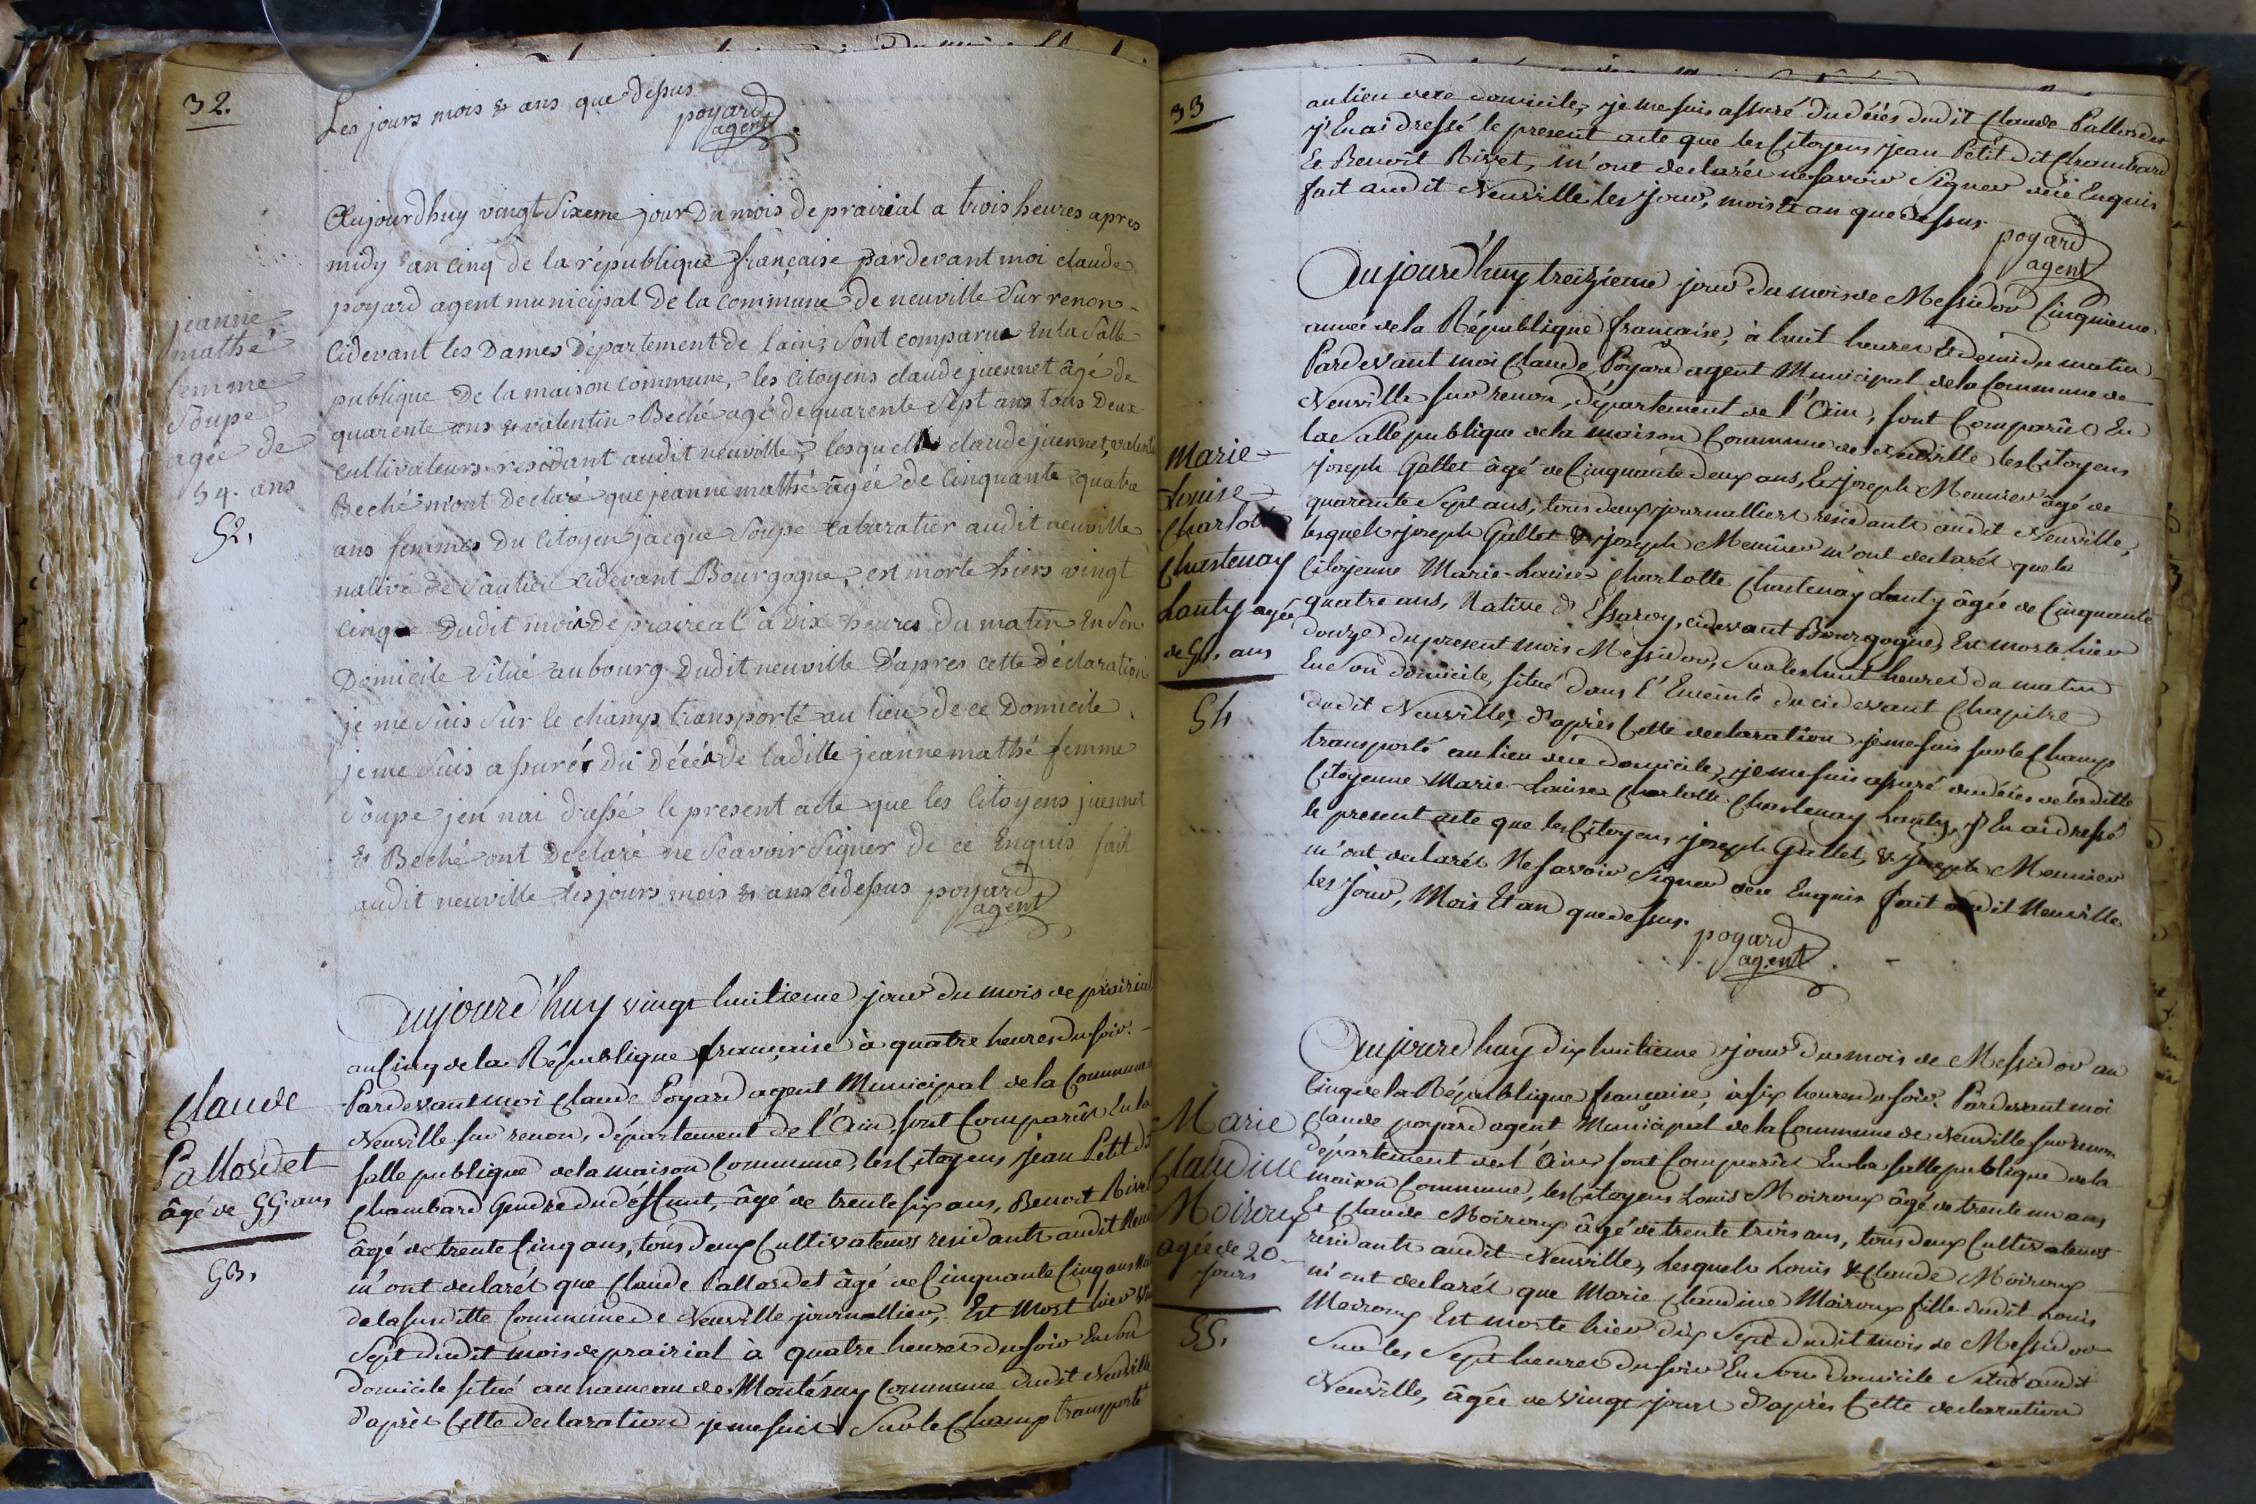 32.
Les jours mois & ans que dessus
poyard
agent
jeanne
mathé
femme
Soupe
agée de
54. ans
52.
Aujourdhuy vaingt Sixeme jour Du mois de prairial a trois heures apres
midy an cinq de la république française pardevant moi claude
poyard agent municipal De la commune de neuville Sur renon
Cidevant les Dames Département de lain, Sont comparue En la Salle
publique De la maison commune, les Citoyens claude juennet âgé de
quarente ans & valentin Beché agé de quarente Sept ans tous Deux
cultivateurs residant audit neuville, lesquels claude juennet,
Beché m'ont Declaré que jeanne mathé âgée de Cinquante quatre
ans femmes Du Citoyen jacque Soupe cabaratier audit neuville
native de Saulieu cidevant Bourgogne, est morte hiers vingt
cinque Dudit mois de praireal à dix heures du matin En Son
Domicile Situé au bourg Dudit neuville D'apres cette Déclaration
je me Suis Sur le champ transporté au lieu de ce Domicile
je me Suis assurér du Décés de laditte jeanne mathé femme
Soupe jen nai dressé le present acte que les Citoyens juennet
& Beché ont Declaré ne Scavoir Signer de ce Enquis fait
audit neuville les jours mois & ans cidessus poyard
agent
Claude
Pallordet
âgé de 55 ans
53.
Aujourd'huy vingt huitieme jour du mois de prairial
an Cinq de la République française à quatre heures du soir.
Pardevant moi Claude Poyard agent Municipal de la Commune
Neuville sur renon, département de l'Ain sont Comparûs En la
salle publique de la maison Commune, les Citoyens jean Petit dit
Chambard Gendre du deffunt, âgé de trente six ans, Benoit Rivet
âgé de trente Cinq ans, tous deux Cultivateurs residants audit
m'ont declarés que Claude Pallordet âgé de Cinquante Cinq ans
de la susditte Commune de Neuville journallier, Est Mort hier
Sept dudit mois de prairial à quatre heures du soir En son
domicile situé au hameau de Montésuy Commune dudit Neuville
d'après Cette declaration je me suis Sur le Champ transporté
33
au lieu de ce domicile, je me suis assuré du décés dudit Claude Pallordet
j'En ai dressé le present acte que les Citoyens jean Petit dit Chambard
Et Benoît Rivet, m'ont declarés ne savoir Signer de ce Enquis
fait audit Neuville les jour, mois & an que dessus.
poyard
agent
Marie
Louise
Charlotte
Chastenay
Lanty agée
de 54. ans
54
Aujourd'huy treizieme jour du mois de Messidor Cinquieme
année de la République française, à huit heures & demi du matin
Pardevant moi Claude Poyard agent Municipal de la Commune de
Neuville sur renon, département de l'Ain, sont Comparûs En
la Salle publique de la maison Commune de Neuville les Citoyens
joseph Gallet âgé de Cinquante deux ans, & joseph Meunier âgé de
quarante Sept ans, tous deux journalliers residants audit Neuville,
lesquels joseph Gallet & joseph Meunier m'ont declarés que la
Citoyenne Marie-Louise Charlotte Chastenay Lanty âgée de Cinquante
quatre ans, Native d'Essaroy, cidevant Bourgogne, Est morte hier
douze du present mois Messidor, Sur les huit heures du matin
En Son domicile, situé dans l'Enceinte du cidevant Chapitre
dudit Neuville, d'après Cette declaration je me suis sur le Champ
transporté au lieu de ce domicile, je me suis assuré du décés de laditte
Citoyenne Marie-Louise Charlotte Chastenay Lanty, j'En ai dressé
le present acte que les Citoyens joseph Gallet, & joseph Meunier
m'ont declarés Ne savoir Signer de ce Enquis fait audit Neuville
les Jour, Mois Et an que dessus.
poyard
agent
Marie
Claudine
Moiroux
agée de 20
jours
55.
Aujourd'huy dix huitieme jour du mois de Messidor an
Cinq de la République française, à six heures du soir. Pardevant moi
Claude poyard agent Municipal de la Commune de Neuville sur renon
département de l'Ain sont Comparûs En la salle publique de la
maison Commune, les Citoyens Louis Moiroux âgé de trente un ans
Et Claude Moiroux âgé de trente trois ans, tous deux Cultivateurs
residants audit Neuville, Lesquels Louis & Claude Moiroux
m'ont declarés que Marie Claudine Moiroux fille dudit Louis
Moiroux Est morte hier dix Sept dudit mois de Messidor
Sur les Sept heures du soir En son domicile Situé audit
Neuville, âgée de Vingt jours d'après Cette declaration